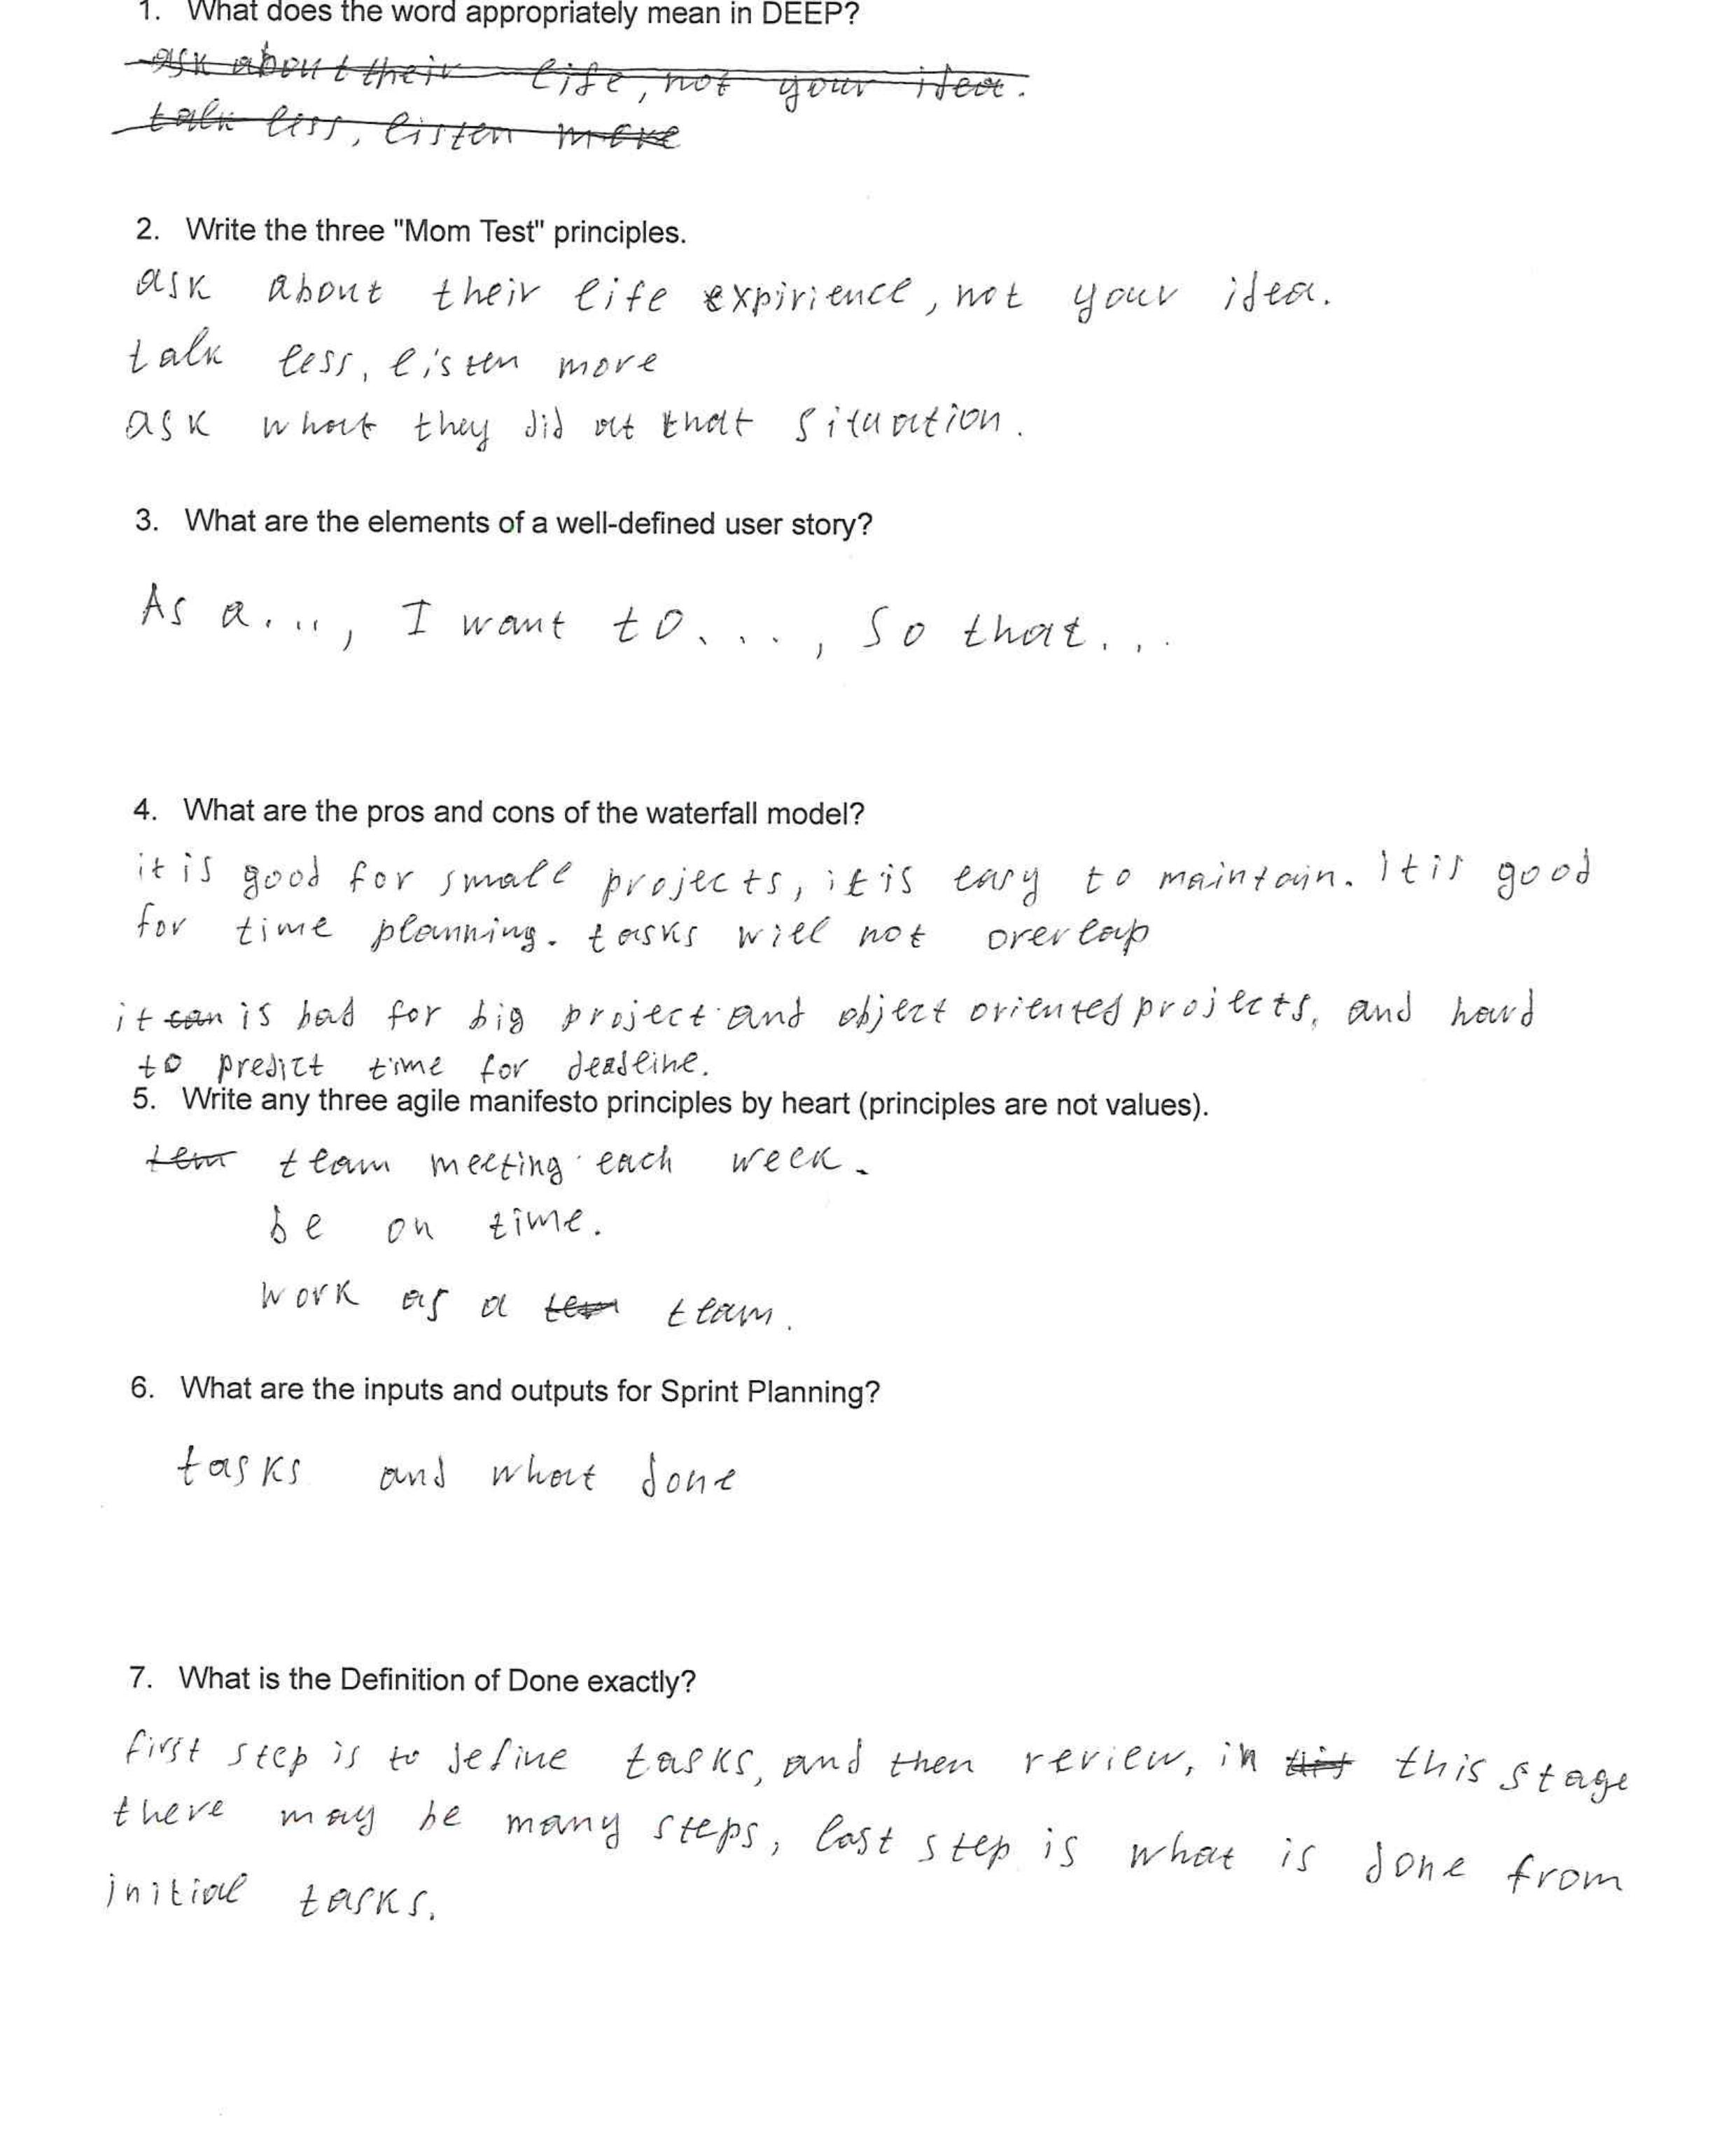 1. What does the word appropriately mean in DEEP?
ask about their life, not your idea.
talk less, listen more
2. Write the three "Mom Test" principles.
ask about their life expirience, not your idea.
talk less, listen more
ask what they did at that situation.
3. What are the elements of a well-defined user story?
As a..., I want to..., So that...
4. What are the pros and cons of the waterfall model?
it is good for small projects, it is easy to maintain. It is good
for time planning. tasks will not overlap
it can is bad for big project and object oriented projects, and hard
to predict time for deadline.
5. Write any three agile manifesto principles by heart (principles are not values).
tem team meeting each week.
be on time.
work as a tem team.
6. What are the inputs and outputs for Sprint Planning?
tasks and what done
7. What is the Definition of Done exactly?
first step is to define tasks, and then review, in this stage
there may be many steps, last step is what is done from
initial tasks.